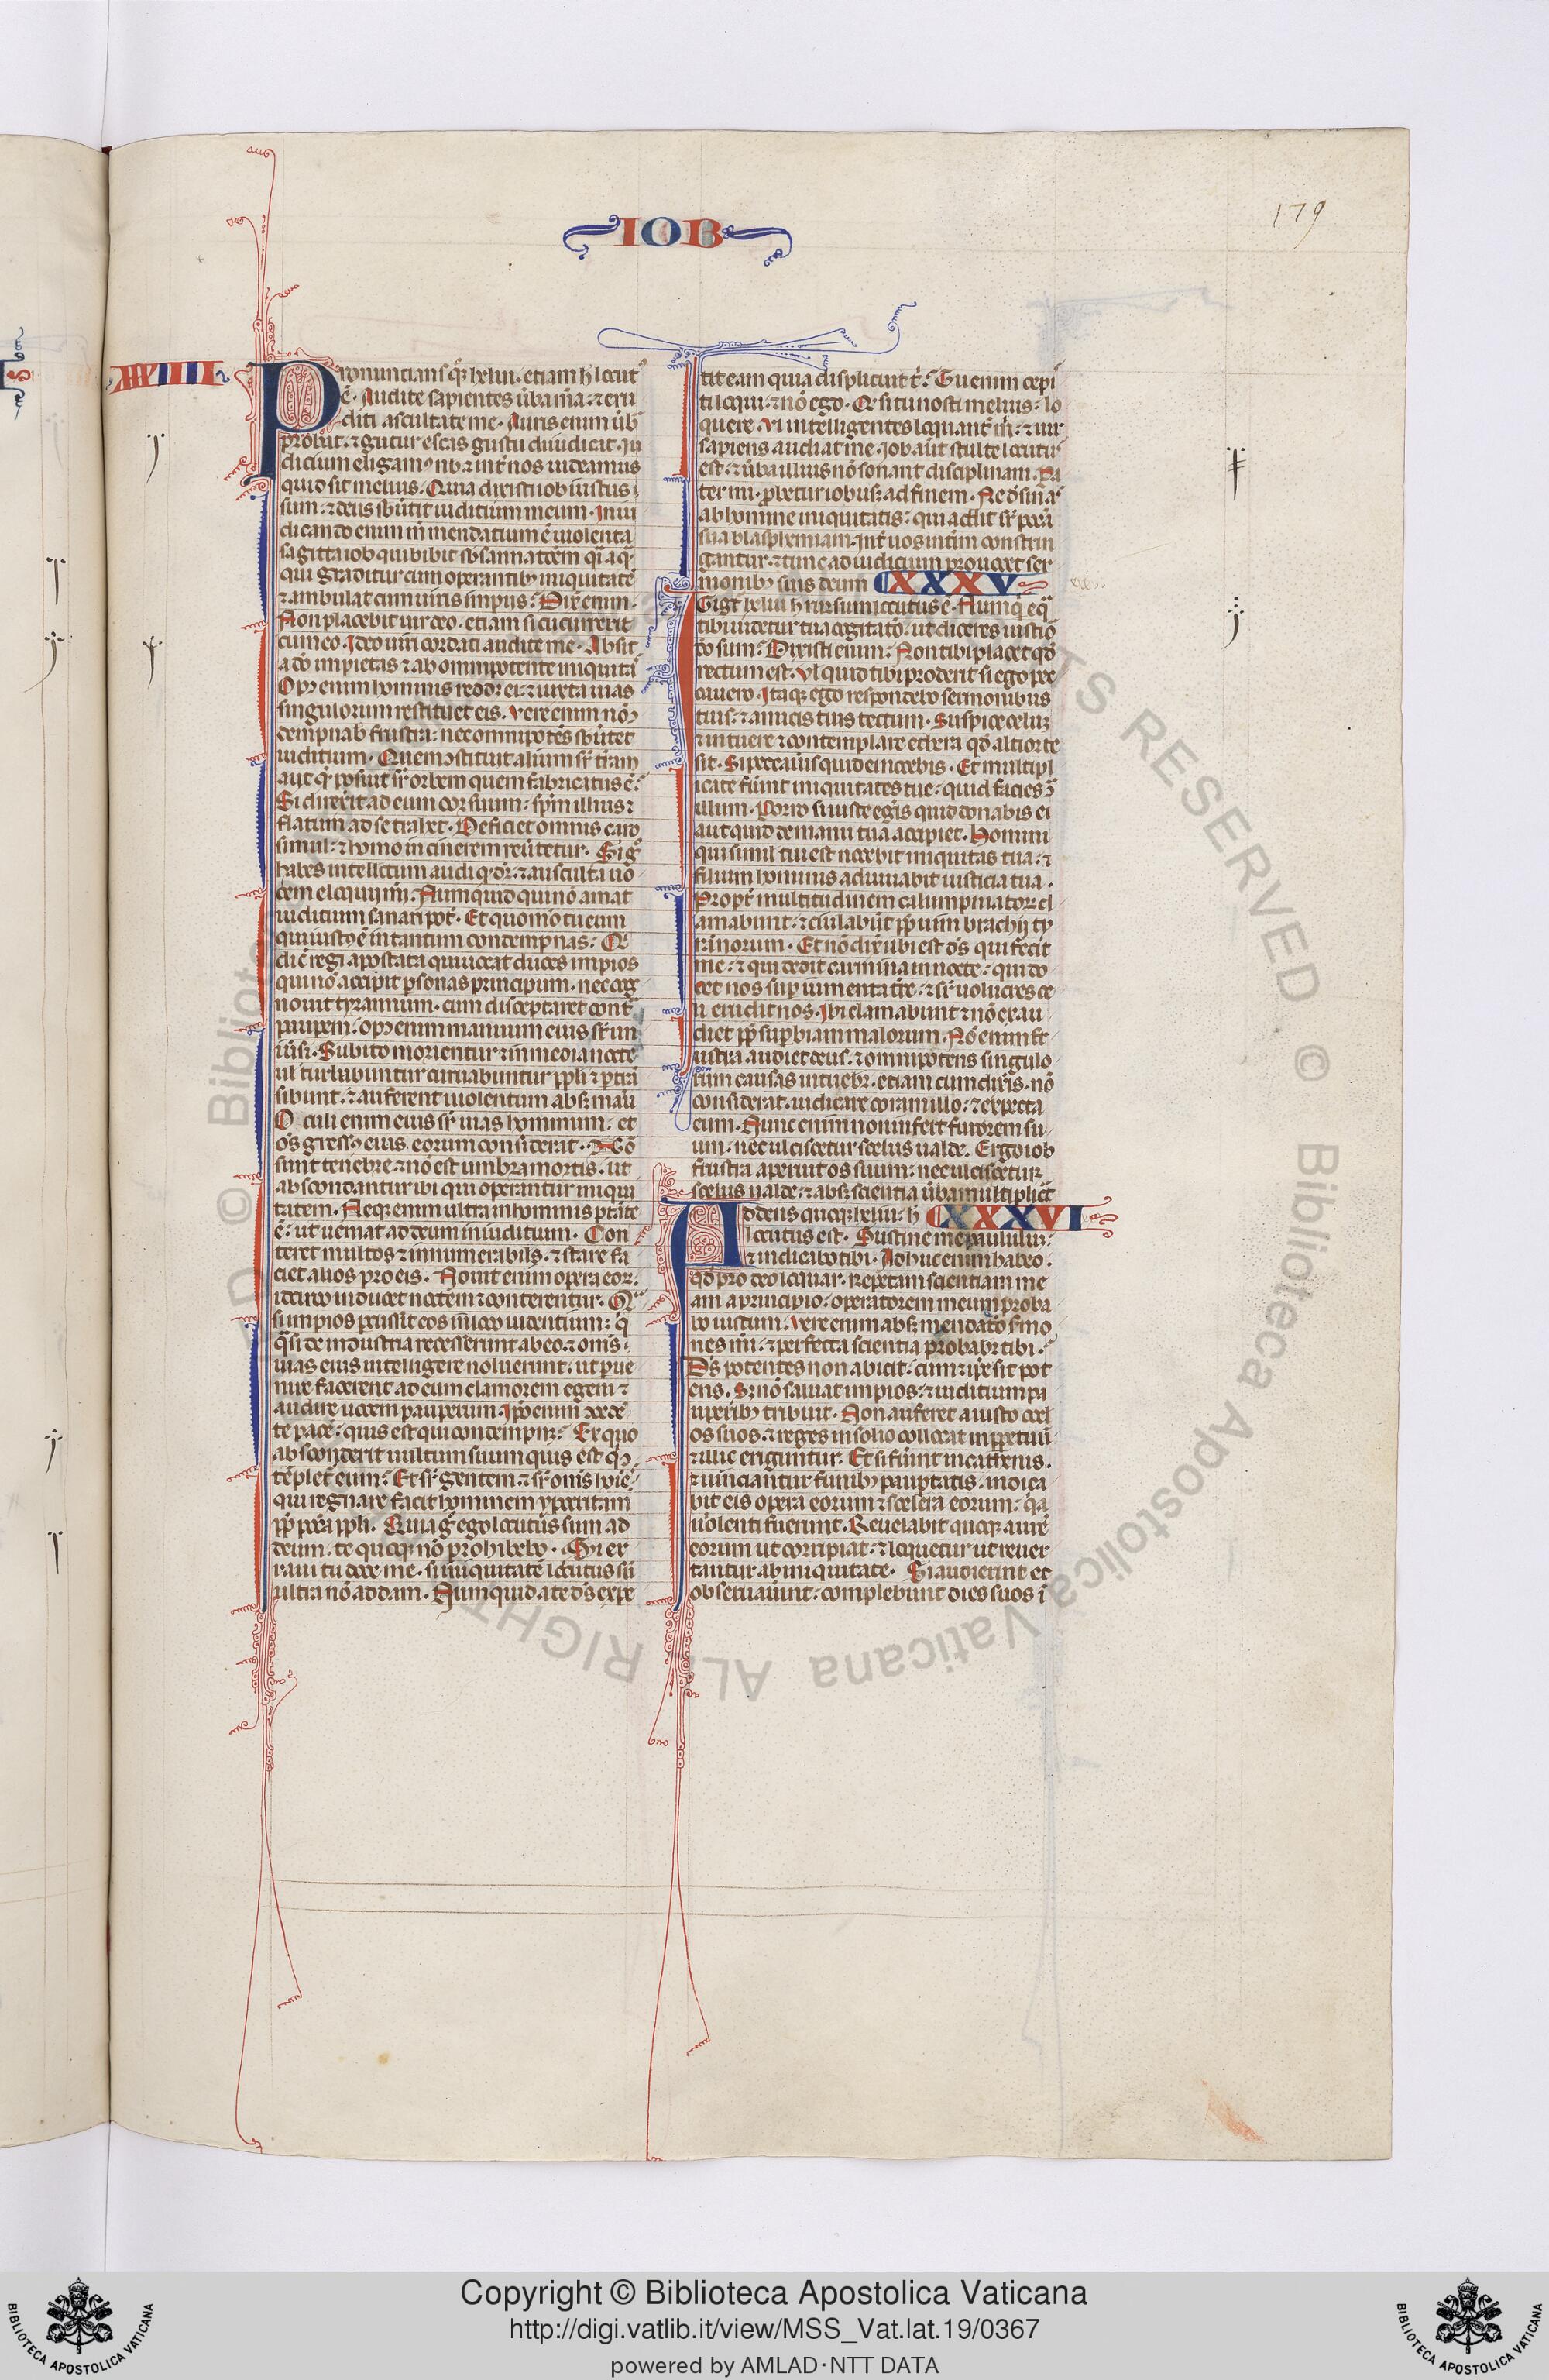 IOB
179
XXXIIII
Pronuncians q̃ʒ heliu. etiam h̾ locut᷒
ẽ. Audite sapientes ũba m̃a: ⁊ eru
diti ascultate me. Auris enim ũb̾
probat. ⁊ gutur escas gustu diiudicat. Iu
dicium eligam᷒ nob̾ ⁊ int̾ nos uideamus
quid sit melius. Quia dixisti iob iustus
sum: ⁊ deus sb̾ũtit iuditium meum. In iu
dicando enim m̃ mendatium ẽ uiolenta
sagitta
qui graditur cum operantib᷒ iniquitatẽ
⁊ ambulat cum uiris impiis: Dix̾ enim.
Non placebit uir deo. etiam si cucurrerit
cum eo. Ideo uiri cordati audite me. Absit
a dõ impietas ⁊ ab omnipotente iniquitã
Op᷒ enim hominis redd᷒ ei: ⁊ iuxta uias
singulorum restituet eis. Vere enim nõ
dempnab̾ frustra: nec omnipotẽs sb̾ũtet
iuditium. Quem ↄstituit alium sr̃ t̾ram
aut q̃ posuit sr̃ orbem quem fabricatus ẽ:
Si direxerit ad eum cor suum: sp̃m illius ⁊
flatum ad se trahet. Deficiet omnis caro
simul: ⁊ homo in cinerem reũtetur. Si g̃
habes intellectum audi q̃ d᷒r: ⁊ ausculta uo
cem eloquij m̃j. Numquid qui nõ amat
iuditium sanari pot̾. Et quomõ tu eum
qui iust᷒ ẽ in tantum contempnas: Qi
dic̃ regi apostata qui uocat duces impios
qui nõ accipit p̃sonas principum. nec cog̃
nouit tyrannum. cum disceptaret cont̾
paupem: op᷒ enim manuum eius sr̃ un
iũsi. Subito morientur ⁊ in media nocte
ul turbabuntur curuabuntur pp̃li ⁊ p̃trã
sibunt. ⁊ auferent uiolentum absʒ manũ
Oculi enim eius sr̃ uias hominum: et
õs gress᷒ eius eorum considerat. Nõ
sunt tenebre ⁊ nõ est umbra mortis. ut
abscondantur ibi qui operantur iniqui
tatem. Neqʒ enim ultra in hominis p̃tãte
ẽ: ut ueniat ad deum in iuditium. Con
teret multos ⁊ innumerabil̾s. ⁊ stare fa
ciet alios pro eis. Nouit enim opera eoꝝ:
idcirco inducet noctem ⁊ conterentur. Qi
si impios p̃cussit eos in loco uidentium: q̃
q̃si de industria recesserunt ab eo: ⁊ om̃s
uias eius intelligere noluerunt. ut p̃ue
nire facerent ad eum clamorem egeni ⁊
audire uocem pauperum. Ip̃o enim ↄcedẽ
te pacẽ: quis est qui condempn᷒: Ex quo
absconderit uultum suum quis est q̃ ↄ
tẽplet̾ eum: Et sr̃ gentem ⁊ sr̃ om̃s hoĩẽ:
qui regnare facit hominem ypocritam
pp̃ pc̃ã pp̃li. Quia g̃ ego locutus sum ad
deum. te quoqʒ nõ prohibebo. Si er
raui tu doce me. si iniquitatẽ locutus sũ
ultra nõ addam. Numquid a te d̃s expe
tit eam quia displicuit t̾: Tu enim cepi
ti loqui. ⁊ nõ ego. Qi si tu nosti melius: lo
quere. Viri intelligentes loquant̾ m̃: ⁊ uir
sapiens audiat me. Iob aũt stulte locutu᷒
est: ⁊ ũba illius nõ sonant disciplinam. Pa
ter mi. probetur iob usʒ ad finem. Ne desinas
ab homine iniquitatis: qui addit sr̃ pc̃cã
sua blasphemiam. Int̾ nos int̾im constrin
gantur: ⁊ tunc ad iuditium prouocet ser
monib᷒ suis deum XXXV
Igit̾ heliu h̾ rursum locutus ẽ. Numq̃ eq̃
tibi uidetur tua cogitatõ: ut diceres iustiõ
dõ sum: Dixisti enim: Non tibi placet qõ
rectum est. Vl quid tibi proderit si ego pec
cauero. Itaqʒ ego respondebo sermonibus
tuis: ⁊ amicis tuis tectum. Suspice celum
⁊ intuere ⁊ contemplare ethera qõ altior te
sit. Si peccaũis quid ei nocebis. Et si multipl
icate fũint iniquitates tue: quid facies ↄ̃
illum. Porro si iuste eg̾is quid donabis ei
aut quid de manu tua accipiet. Homini
qui simil̾ tui est nocebit iniquitas tua: ⁊
filium hominis adiuuabit iusticia tua.
Propt̾ multitudinem calumpniatoꝝ cl
amabunt: ⁊ eiulabũt pp̃ uim brachij ty
rãnorum. Et nõ dix̾ ubi est d̃s qui fecit
me: ⁊ qui dedit carmina in nocte: qui do
cet nos sup̃ iumenta t̾re: ⁊ sr̃ uolucres ce
li erudit nos. Ibi clamabunt ⁊ nõ exau
diet pp̃ sup̃biam malorum. Nõ enim fr
ustra audiet deus. ⁊ omnipotens singulo
rum causas intuebr̾. etiam cum dix̾is. nõ
considerat. iudicare coram illo: ⁊ expecta
eum. Nunc enim non infert furorem su
um: nec ulciscetur scelus ualde. Ergo iob
frustra aperuit os suum: nec ulciscetur
scelus ualde: ⁊ absʒ scientia ũba multiplic̾t
Addens quoqʒ heliu. h̾ XXXVI
locutus est. Sustine me paululum:
⁊ indicabo tibi. Adhuc enim habeo.
qõ pro deo loquar. Repetam scientiam me
am a principio: operatorem meum proba
bo iustum. Vere enim absʒ mendatõ s̾mo
nes m̃i: ⁊ perfecta scientia probabr̾ tibi.
D̃s potentes non abicit: cum ⁊ ip̃e sit pot
ens. S; nõ saluat impios: ⁊ iuditium pa
uperib᷒ tribuit. Non auferet a iusto ocul
os suos: ⁊ reges in solio collocat in pp̃etuũ
⁊ illic eriguntur. Et si fũint in cathenis.
⁊ uinciantur funib᷒ paup̃tatis: indica
bit eis opera eorum ⁊ scelera eorum: q̃a
uiolenti fuerunt. Reuelabit quoqʒ aurẽ
eorum ut corripiat: ⁊ loquetur ut reuer
tantur ab iniquitate. Si audierint et
obseruaũint: complebunt dies suos ĩ
Copyright © Biblioteca Apostolica Vaticana
http://digi.vatlib.it/view/MSS_Vat.lat.19/0367
powered by AMLAD·NTT DATA
BIBLIOTECA APOSTOLICA VATICANA
BIBLIOTECA APOSTOLICA VATICANA